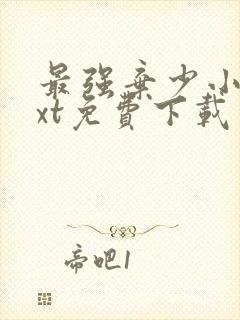 最强弃少小
xt免費下載
帝吧1